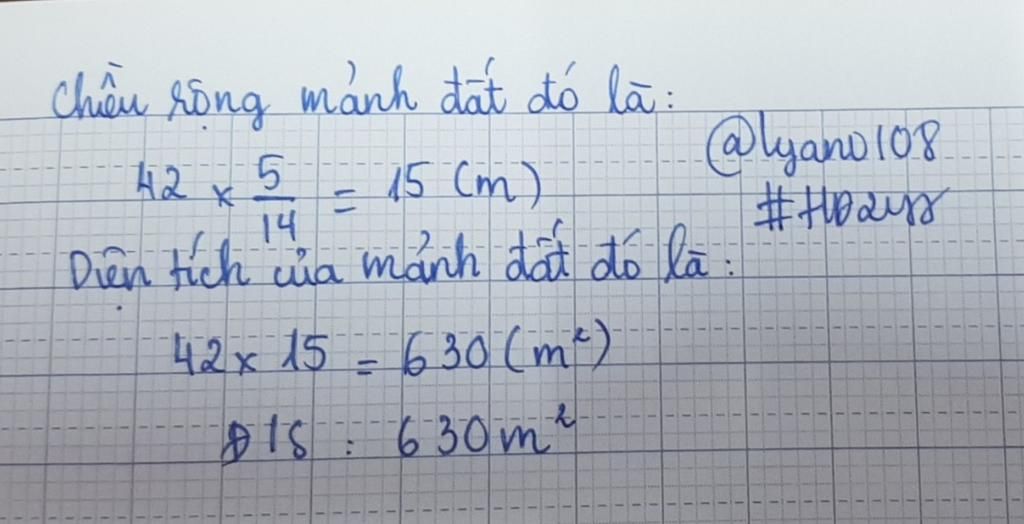 Chiều rộng mảnh đất đó là:
42 × 5/14 = 15 (m)
@lyano108
Diện tích của mảnh đất đó là:
42 × 15 = 630 (m²)
ĐS : 630m²